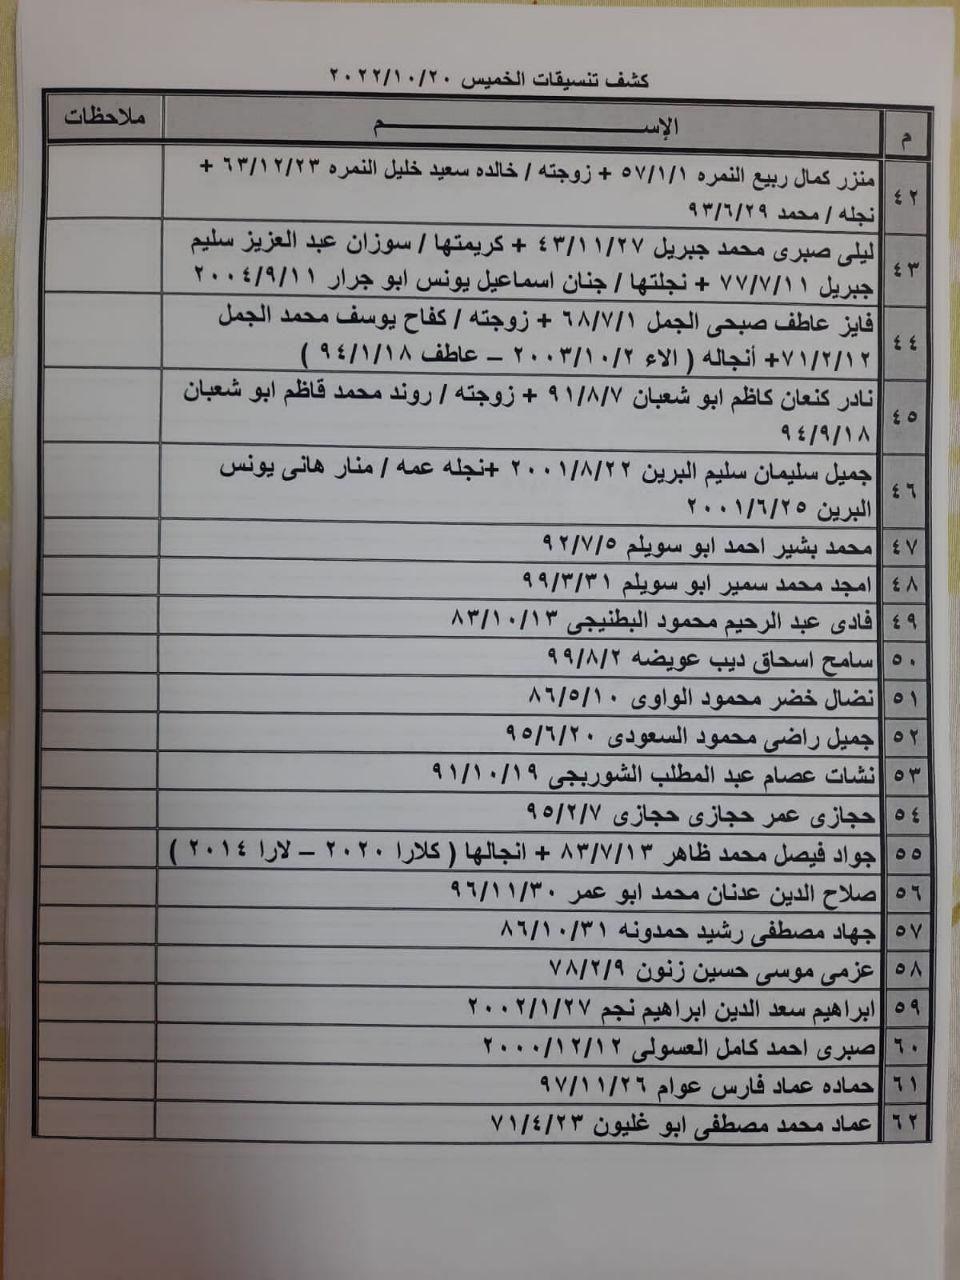 كشف تنسيقات الخميس ٢٠٢٢/١٠/٢٠
م الإســـــــــم ملاحظات
٤٢ منزر كمال ربيع النمره ٥٧/١/١ + زوجته / خالده سعيد خليل النمره ٦٣/١٢/٢٣ +
نجله / محمد ٩٣/٦/٢٩
٤٣ ليلى صبرى محمد جبريل ٤٣/١١/٢٧ + كريمتها / سوزان عبد العزيز سليم
جبريل ٧٧/٧/١١ + نجلتها / جنان اسماعيل يونس ابو جرار ٢٠٠٤/٩/١١
٤٤ فايز عاطف صبحى الجمل ٦٨/٧/١ + زوجته / كفاح يوسف محمد الجمل
٧١/٢/١٢+ أنجاله ( الاء ٢٠٠٣/١٠/٢ – عاطف ٩٤/١/١٨ )
٤٥ نادر كنعان كاظم ابو شعبان ٩١/٨/٧ + زوجته / روند محمد قاظم ابو شعبان
٩٤/٩/١٨
٤٦ جميل سليمان سليم البرين ٢٠٠١/٨/٢٢ +نجله عمه / منار هانى يونس
البرين ٢٠٠١/٦/٢٥
٤٧ محمد بشير احمد ابو سويلم ٩٢/٧/٥
٤٨ امجد محمد سمير ابو سويلم ٩٩/٣/٣١
٤٩ فادى عبد الرحيم محمود البطنيجى ٨٣/١٠/١٣
٥٠ سامح اسحاق ديب عويضه ٩٩/٨/٢
٥١ نضال خضر محمود الواوى ٨٦/٥/١٠
٥٢ جميل راضى محمود السعودى ٩٥/٦/٢٠
٥٣ نشات عصام عبد المطلب الشوربجى ٩١/١٠/١٩
٥٤ حجازى عمر حجازى حجازى ٩٥/٢/٧
٥٥ جواد فيصل محمد ظاهر ٨٣/٧/١٣ + انجالها ( كلارا ٢٠٢٠ – لارا ٢٠١٤ )
٥٦ صلاح الدين عدنان محمد ابو عمر ٩٦/١١/٣٠
٥٧ جهاد مصطفى رشيد حمدونه ٨٦/١٠/٣١
٥٨ عزمى موسى حسين زنون ٧٨/٢/٩
٥٩ ابراهيم سعد الدين ابراهيم نجم ٢٠٠٢/١/٢٧
٦٠ صبرى احمد كامل العسولى ٢٠٠٠/١٢/١٢
٦١ حماده عماد فارس عوام ٩٧/١١/٢٦
٦٢ عماد محمد مصطفى ابو غليون ٧١/٤/٢٣